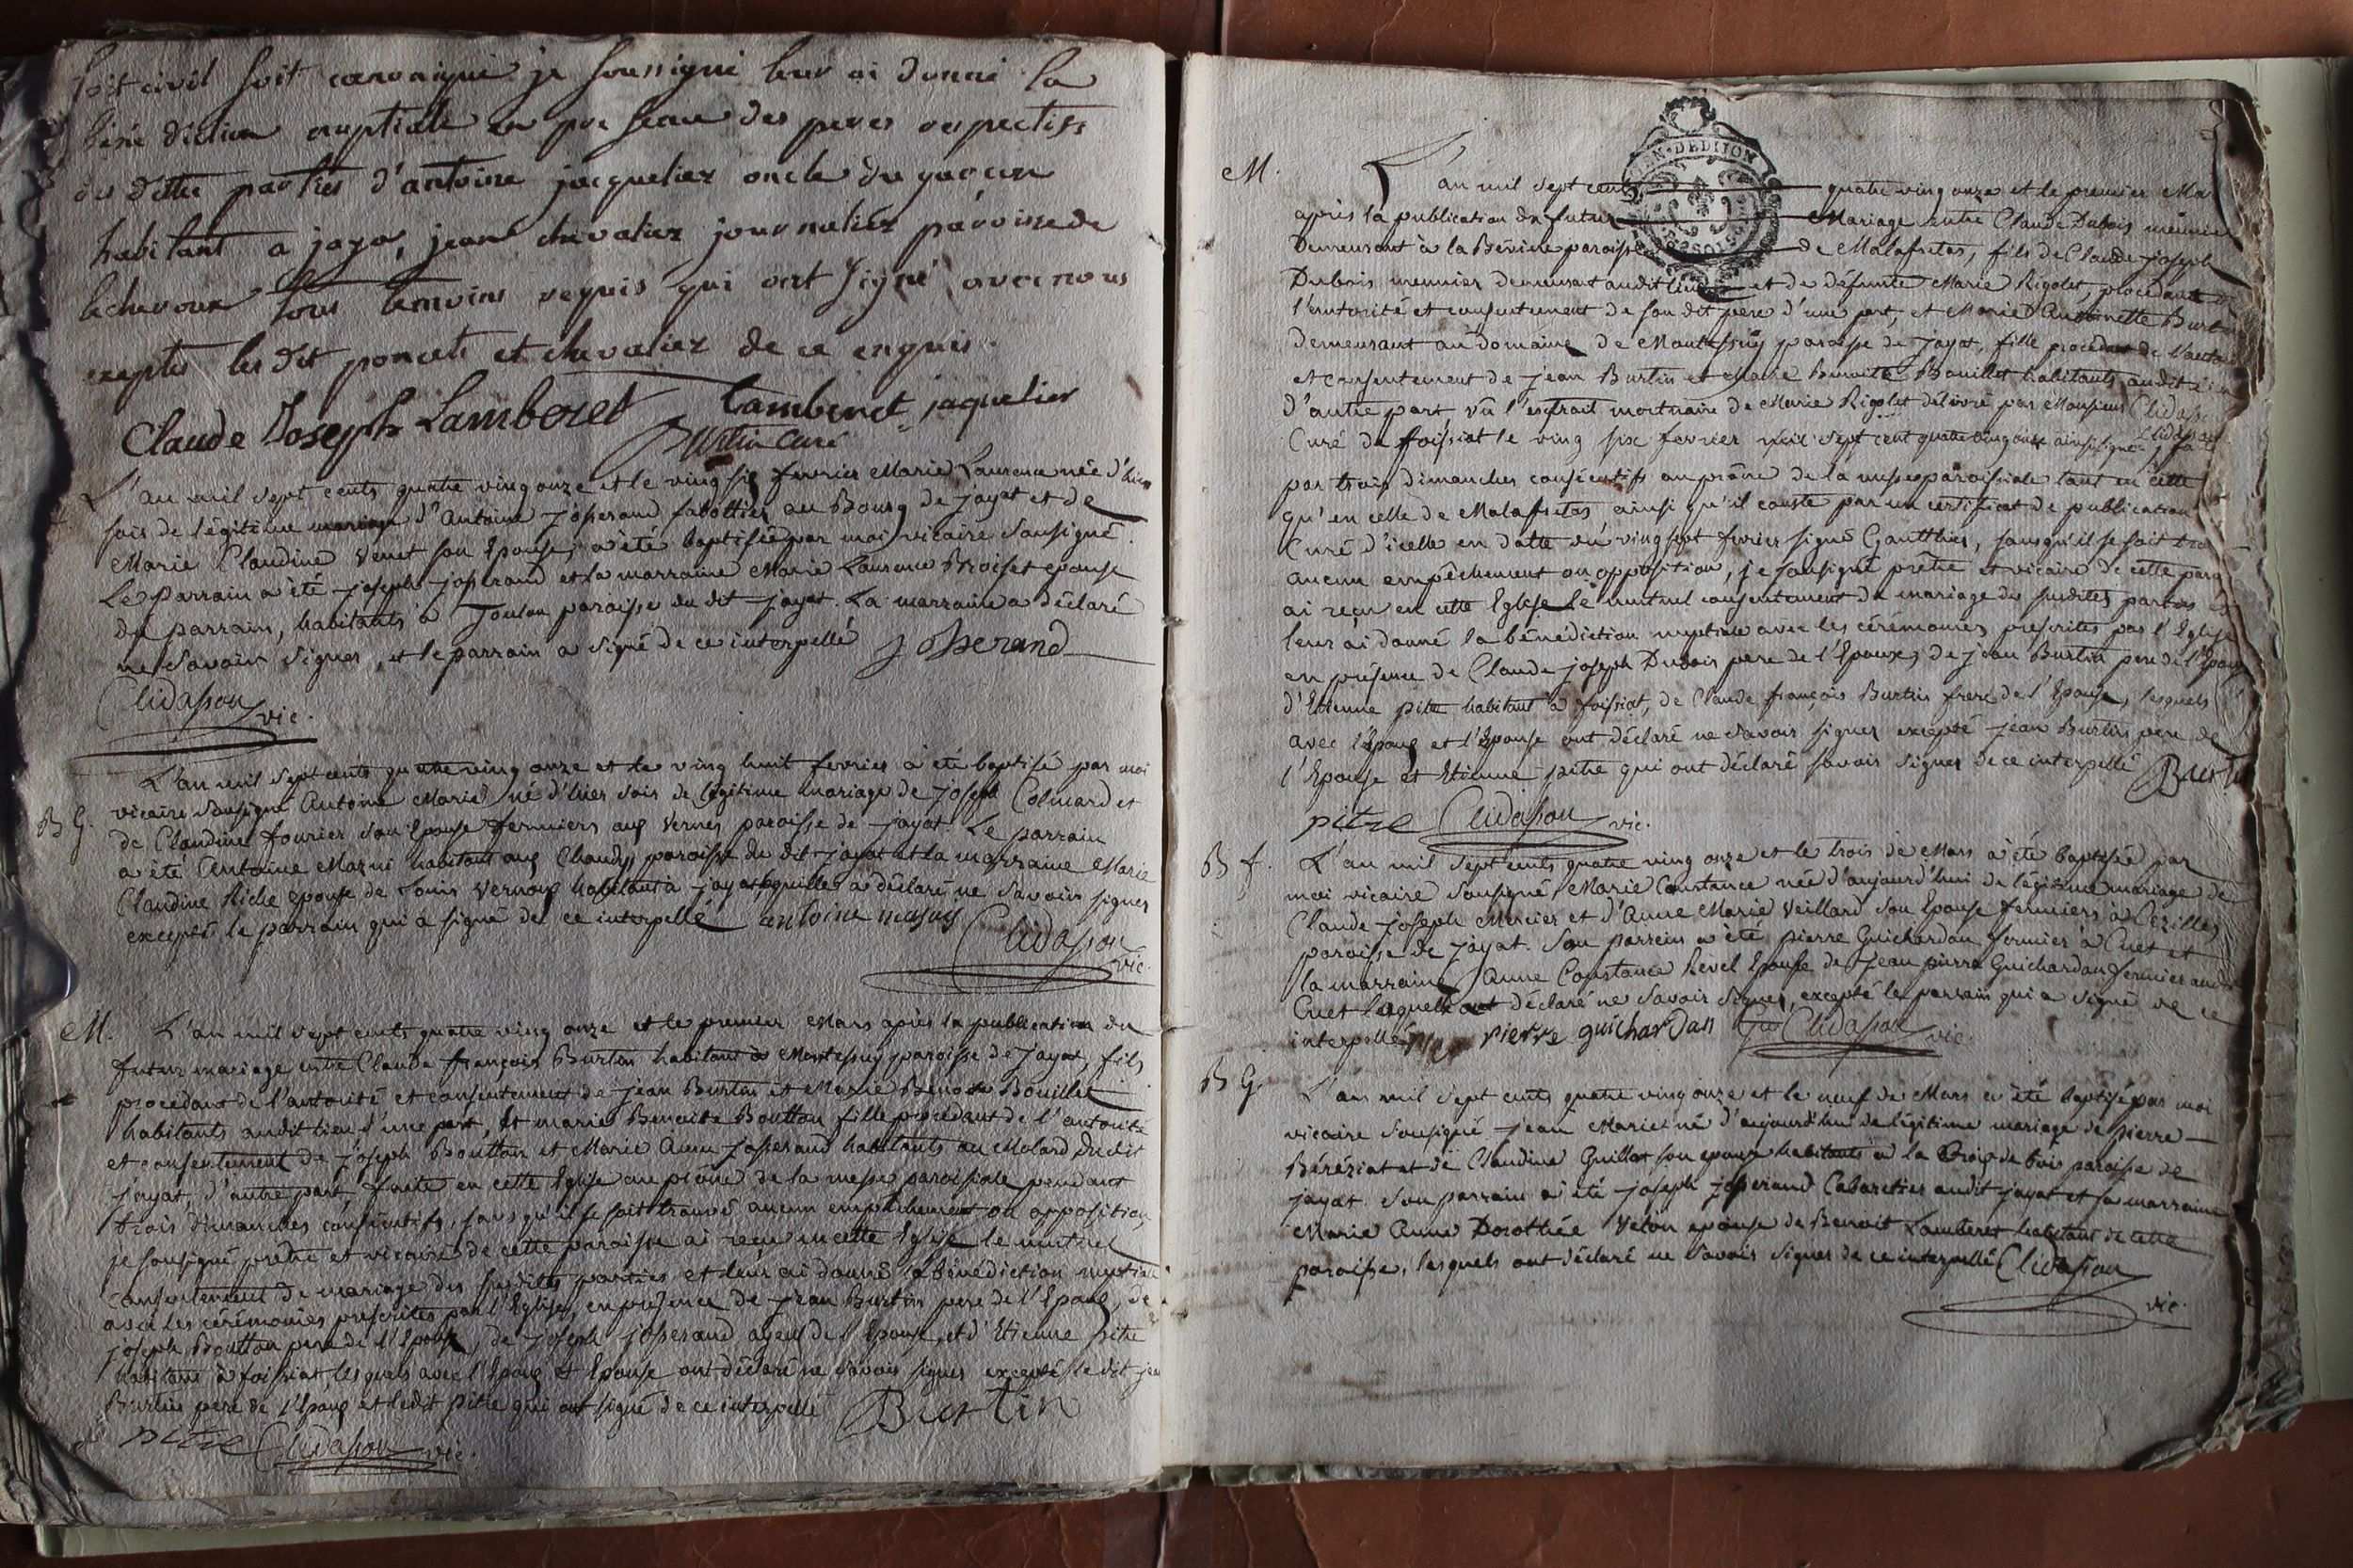 soit civil soit canonique je soussigné leur ai donné la
béné diction nuptiale en pre sence des peres respectifs
des dittes parties d'antoine jacquelier oncle du garcon
habitant a jaya, jean chevalier journalier paroisse de
lecheroux tous temoins requis qui ont signé avec nous
exeptes les dit poncets et chevalier de ce enquis.
Claude Joseph Lamberet Lamberet jaquelier
Burtin curé
L'an mil sept cents quatre ving onze et le ving six fevrier Marie Laurence née d'hier
soir de légitime mariage d'Antoine josserand sabottier au Bourg de jayat et de
Marie Claudine Venet son Epouse, a été baptisée par moi vicaire sousigné.
Le parrain a été joseph josserand et la marraine Marie Laurence Broiset epouse
du parrain, habitants à Toulon paroisse du dit jayat. La marraine a déclaré
ne savoir signer, et le parrain a signé de ce interpellé josserand
Clidassou vic.
L'an mil sept cents quatre ving onze et le ving huit fevrier a été baptisé par moi
B G. vicaire sousigné Antoine Marie né d'hier soir de légitime mariage de joseph Colmard et
de Claudine fourier son Epouse fermiers aux Vernes paroisse de jayat. Le parrain
a été Antoine Masni habitant aux Chaudys paroisse du dit jayat et la marraine Marie
Claudine Riche epouse de Louis Vernoux habitant à jayat, laquelle a déclaré ne savoir signer
excepté le parrain qui a signé de ce interpellé antoine masuy
Clidassou vic.
M. L'an mil sept cents quatre ving onze et le premier Mars après la publication du
futur mariage entre Claude françois Burtin habitant à Montessuy paroisse de jayat, fils
procédant de l'autorité et consentement de jean Burtin et Marie Benoite Bouillet
habitants audit lieu d'une part, Et marie Benoite Boutton fille procédant de l'autorité
et consentement de joseph Boutton et Marie Anne josserand habitants au Molard dudit
jayat, d'autre part faite en cette Eglise au prône de la messe paroissiale pendant
trois dimanches consécutifs, sans qu'il se soit trouvé aucun empêchement ou opposition,
je sousigné prêtre et vicaire de cette paroisse ai reçu en cette Eglise le mutuel
consentement de mariage des susdites parties et leur ai donné la bénédiction nuptiale
avec les cérémonies prescrites par l'Eglise, en présence de jean Burtin pere de l'Epoux, de
joseph Boutton pere de l'Epouse, de joseph josserand ayeul de l'Epouse, et d'Etienne pitre
habitant à foissiat, lesquels avec l'Epoux et Epouse ont déclaré ne savoir signer excepté le dit jean
Burtin pere de l'Epoux et ledit pitre qui ont signé de ce interpellé Burtin
pitre Clidassou vic.
EN. DE DIJON
M. L'an mil sept cents quatre ving onze et le premier Mars
après la publication du futur Mariage entre Claude Dubois meunier
Demeurant à la Bévière paroisse de Malafretas, fils de Claude joseph
Dubois meunier demeurant audit lieu et de défunte Marie Rigolet, procédant de
l'autorité et consentement de son dit pere d'une part, et Marie Antoinette Burtin
demeurant au domaine de Montessuy paroisse de jayat, fille procédant de l'autorité
et consentement de jean Burtin et Marie Benoite Bouillet habitants audit lieu
d'autre part vû l'extrait mortuaire de Marie Rigolet délivré par Monsieur Clidassou
Curé de foissiat le ving six fevrier mil sept cent quatre ving onze ainsi signé Clidassou
par trois dimanches consécutifs au prône de la messe paroissiale tant en cette
qu'en celle de Malafretas ainsi qu'il conste par un certificat de publication
Curé d'icelle en datte du ving sept fevrier signé Gautthier, sans qu'il se soit trouvé
aucun empêchement ou opposition, je sousigné prêtre et vicaire de cette paroisse
ai reçu en cette Eglise le mutuel consentement du mariage des susdites parties et
leur ai donné la bénédiction nuptiale avec les cérémonies prescrites par l'Eglise
en présence de Claude joseph Dubois pere de l'Epoux, de jean Burtin pere de l'Epouse
d'Etienne pitre habitant à foissiat, de Claude françois Burtin frere de l'Epouse, lesquels
avec l'Epoux et l'Epouse ont déclaré ne savoir signer excepté jean Burtin pere de
l'Epouse et Etienne pitre qui ont déclaré savoir signer de ce interpellé Burtin
pitre Clidassou vic.
B f. L'an mil sept cents quatre ving onze et le trois de Mars a été baptisée par
moi vicaire sousigné, Marie Constance née d'aujourd'hui de légitime mariage de
Claude joseph Mercier et d'Anne Marie Veillard son Epouse fermiers à Cézilles
paroisse de jayat. Son parrein a été pierre Guichardan fermier à Cuet et
la marraine Anne Constance Revel Epouse de Jean pierre Guichardan fermier audit
Cuet laquelle a déclaré ne savoir signer, excepté le parrain qui a signé de ce
interpellé pierre guichardan Clidassou vic.
B G. L'an mil sept cents quatre ving onze et le neuf de Mars a été baptisé par moi
vicaire sousigné jean Marie né d'aujourd'hui de légitime mariage de pierre
Béréziat et de Claudine Guillot son epouse habitants à la Croix de bois paroisse de
jayat. Son parrain a été joseph josserand Cabaretier audit jayat et sa marraine
Marie Anne Dorothée Velon epouse de Benoit Lamberet habitant de cette
paroisse, lesquels ont déclaré ne savoir signer de ce interpellé Clidassou
vic.